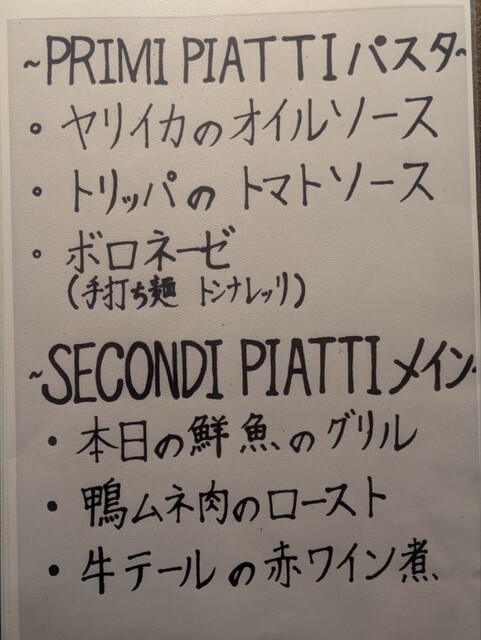 ~PRIMI PIATTI パスタ~
• ヤリイカのオイルソース
• トリッパの トマトソース
• ボロネーゼ
(手打ち麺 トンナレッリ)
~SECONDI PIATTI メイン~
• 本日の鮮魚のグリル
• 鴨ムネ肉のロースト
• 牛テールの赤ワイン煮